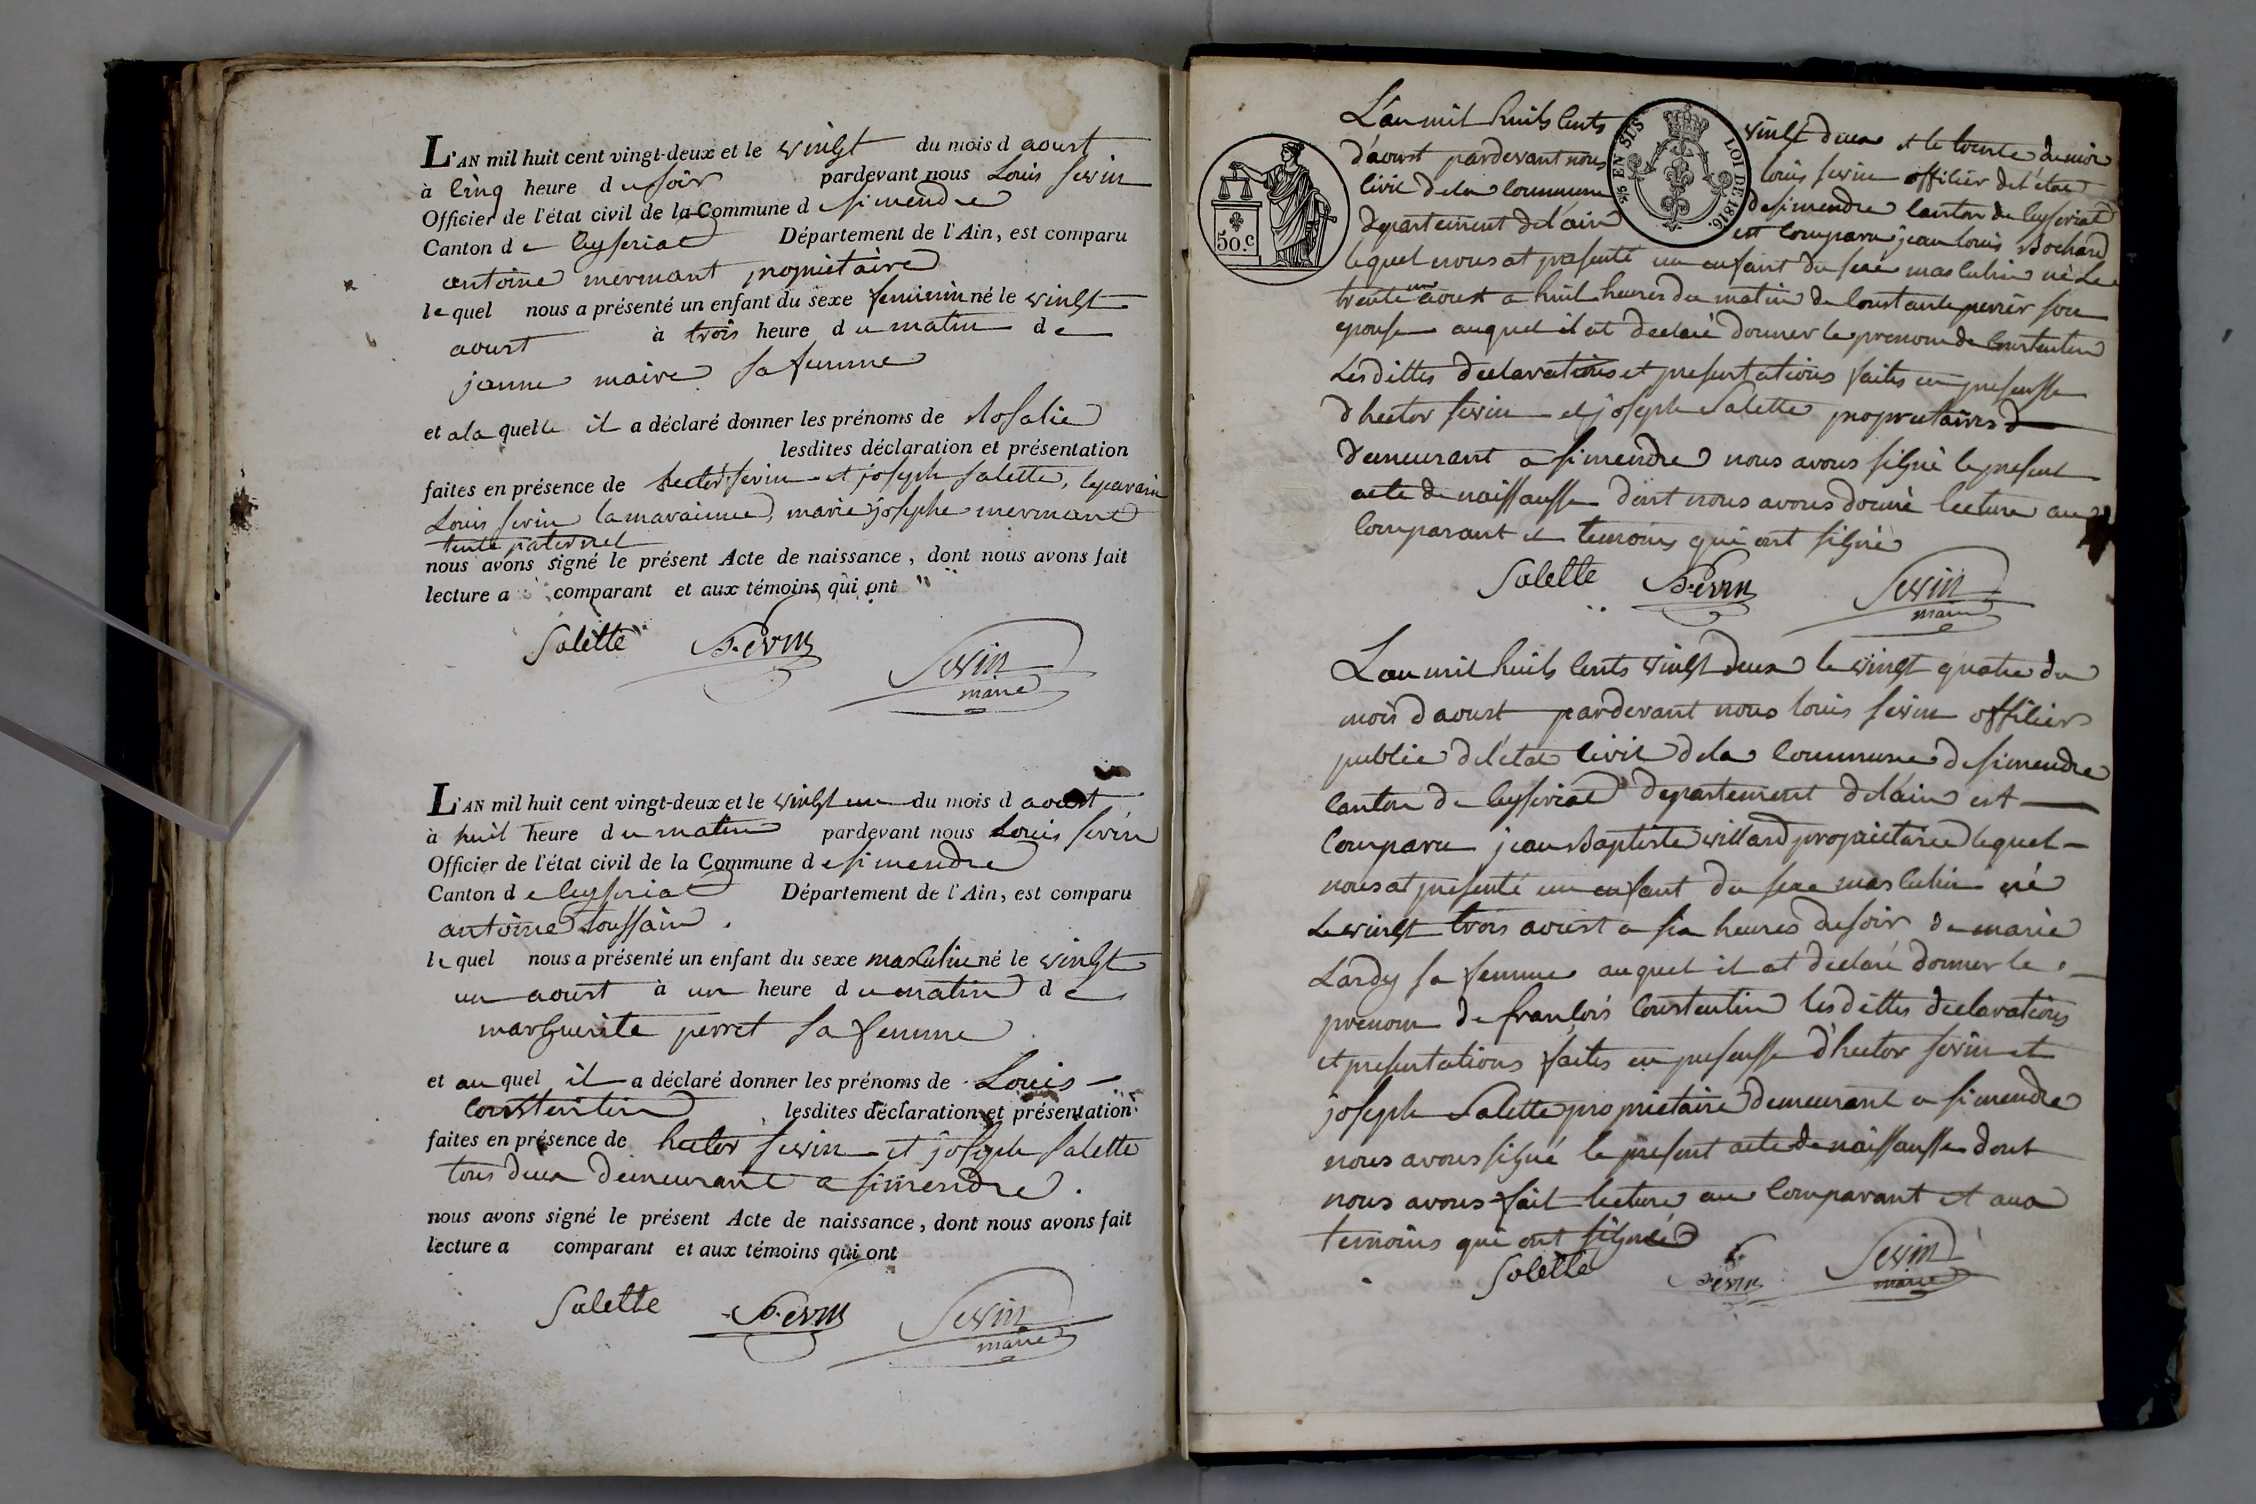 L'AN mil huit cent vingt-deux et le vingt du mois d aoust
à cinq heure du soir pardevant nous Louis sevin
Officier de l'état civil de la Commune de simendre
Canton de ceyseriat Département de l'Ain, est comparu
antoine mermant propriétaire
lequel nous a présenté un enfant du sexe feminin né le vingt
aoust à trois heure du matin de
janne maire sa femme
et a la quelle il a déclaré donner les prénoms de Rosalie
lesdites déclaration et présentation
faites en présence de hector sevin et joseph salette, le parain
Louis sevin la maraine, marie josephe mermant
tente paternel
nous avons signé le présent Acte de naissance, dont nous avons fait
lecture a comparant et aux témoins qui ont
Salette Sevin Sevin
maire
L'AN mil huit cent vingt-deux et le vingt un du mois d aoust
à huit heure du matin pardevant nous Louis sevin
Officier de l'état civil de la Commune de simendre
Canton de ceyseriat Département de l'Ain, est comparu
antoine toussain.
lequel nous a présenté un enfant du sexe masculin né le vingt
un aoust à un heure du matin de
marguerite perret sa femme
et au quel il a déclaré donner les prénoms de Louis
constentin lesdites déclaration et présentation
faites en présence de hector sevin et joseph salette
tous deux demeurant a simendre.
nous avons signé le présent Acte de naissance, dont nous avons fait
lecture a comparant et aux témoins qui ont
Salette Sevin Sevin
maire
50.c
EN SUS LOI DE 1816.
L'an mil huits cents vingt deux et le trente du mois
d'aoust pardevant nous louis sevin officier de l'état
civil de la commune de simendre canton de ceyseriat
departement de l'ain est comparu jean louis Bochard
lequel nous at presenté un enfant du sexe masculin né Le
trente un aoust a huit heures du matin de Constante perrier son
epouse auquel il at declaré donner le prenom de Constentin
Lesdittes declarations et presentations faites en presensse
d'hector sevin et joseph Salette propriétaires
demeurant a simendre nous avons signé le present
acte de naissansse dont nous avons donné lecture au
Comparant et temoins qui ont signé
Salette Sevin Sevin
maire
L'an mil huits cents vingt deux le vingt quatre du
mois d'aoust pardevant nous louis sevin officier
public de l'état civil de la Commune de simendre
canton de ceyseriat departement de l'ain est
Comparu jean Baptiste willard propriétaire lequel
nous at presenté un enfant du sexe masculin né
Le vingt trois aoust a six heures du soir de marie
Lardy sa femme auquel il at déclaré donner le
prenom de françois Constentin lesdittes declarations
et presentations faites en presensse d'hector sevin et
joseph Salette propriétaire demeurant a simendre
nous avons signé le present acte de naissansse dont
nous avons fait lecture au Comparant et aux
temoins qui ont signé
Salette Sevin Sevin
maire